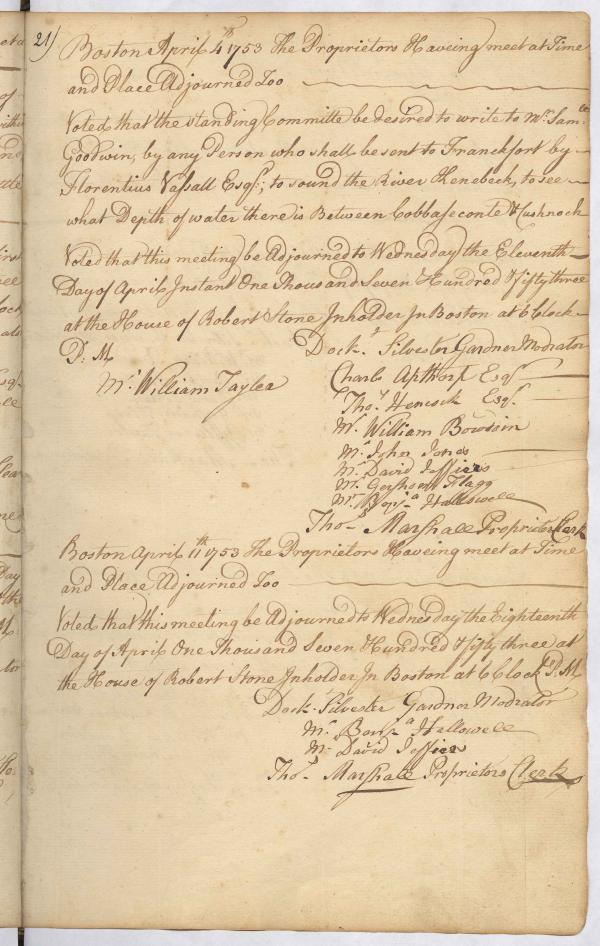 21)
Boston April 4th 1753 The Proprietors Haveing meet at Time
and Place Adjourned Too
Voted that the standing Committe be desired to write to Mr. Samll
Goodwin, by any Person who shall be sent to Franckfort by
Florentius Vassall Esqr., to sound the River Kenebeck, to see
what Depth of water there is Between Cobbaseconte & Cushnock
Voted that this meeting be Adjourned to Wednesday the Eleventh
Day of April Instant One Thousand Seven Hundred & fifty three
at the House of Robert Stone Inholder In Boston at 6 Clock
P: M
Dockr. Silvester Gardner Modrator
Mr. William Tayler
Charls Apthorp Esqr.
Thos. Hencock Esqr.
Mr. William Bowdoin
Mr. John Jones
Mr. David Jeffiers
Mr. Gershom Flagg
Mr. Benja. Hallowell
Thos. Marshall Proprietors Clerk
Boston April 11th 1753 The Proprietors Haveing meet at Time
and Place Adjourned Too
Voted that this meeting be Adjourned to Wednesday the Eighteenth
Day of April One Thousand Seven Hundred & fifty three at
the House of Robert Stone Inholder In Boston at 6 Clock P. M
Dockr. Silvester Gardner Modrator
Mr. Benja. Hallowell
Mr. David Jeffiers
Thos. Marshall Proprietors Clerk